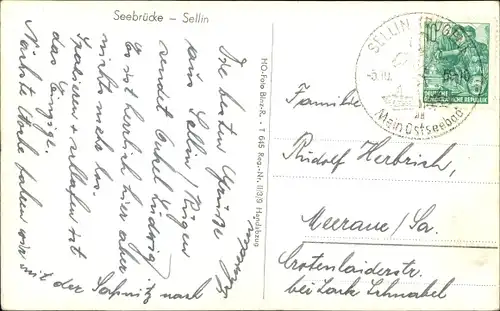 Seebrücke – Sellin
Die besten Grüße
aus Sellin/Rügen
sendet Onkel Ludwig.
Es ist herrlich hier aber
nichts mehr los.
Spazieren + schlafen ist
das Einzige.
Nächste Woche fahren wir mit
der Saßnitz nach
HO-Foto Binz-R. - T 645 Reg.-Nr. II/3/9 Handabzug
SELLIN (RÜGEN)
Mein Ostseebad
10
DEUTSCHE DEMOKRATISCHE REPUBLIK
Familie
Rudolf Herbrich,
Meerane/Sa.
Crotenlaiderstr.
bei Lack Schnabel